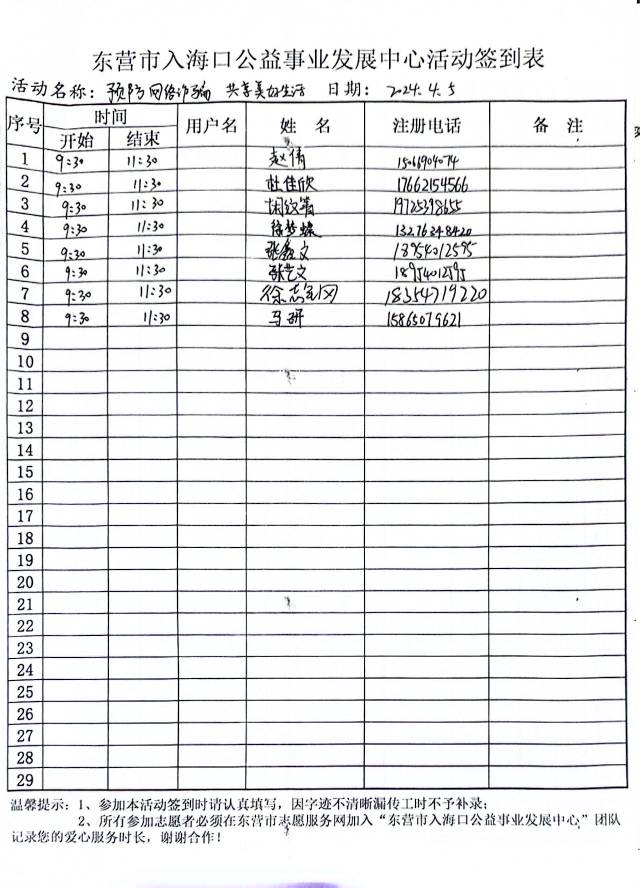 东营市入海口公益事业发展中心活动签到表
活动名称：预防网络诈骗 共享美好生活 日期：2024.4.5
序号 时间 用户名 姓名 注册电话 备注
开始 结束
1 9:30 11:30 赵倩 15066904074
2 9:30 11:30 杜佳欣 17662154566
3 9:30 11:30 19725398655
4 9:30 11:30 徐梦蝶 13276348420
5 9:30 11:30 张鑫文 18954012595
6 9:30 11:30 张艺文 18954012595
7 9:30 11:30 徐志刚 18354719220
8 9:30 11:30 马妍 15865079621
9
10
11
12
13
14
15
16
17
18
19
20
21
22
23
24
25
26
27
28
29
温馨提示：1、参加本活动签到时请认真填写，因字迹不清晰漏传工时不予补录；
2、所有参加志愿者必须在东营市志愿服务网加入“东营市入海口公益事业发展中心”团队
记录您的爱心服务时长，谢谢合作！